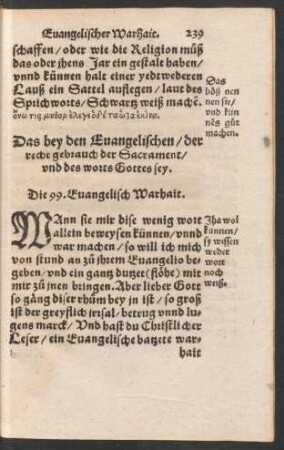 Euangelischer Warhait. 239
schaffen / oder wie die Religion müß
das oder jhens Jar ein gestalt haben /
vnnd künnen halt einer yedtwederen
Lauß ein Sattel auflegen / laut des
Sprichworts / Schwartz weiß machē.
Das
böß nen
nen sie /
vnd kün
nēs gůt
machen.
Das bey den Euangelischen / der
rechte gebrauch der Sacrament /
vnd des worts Gottes sey.
Die 99. Euangelisch Warhait.
WAnn sie mir dise wenig wort
allein beweysen künnen / vnnd
war machen / so will ich mich
von stund an zů jhrem Euangelio be-
geben / vnd ein gantz dutzet (flöhe) mit
mir zů jnen bringen. Aber lieber Gott
so gäng diser rhům bey jn ist / so groß
ist der greyflich irrsal / betrug vnnd lu-
gens marck / Vnd hast du Christlicher
Leser / ein Euangelische batzete war-
hait
Jha wol
kannen /
sy wissen
weder
wort
noch
weiß.